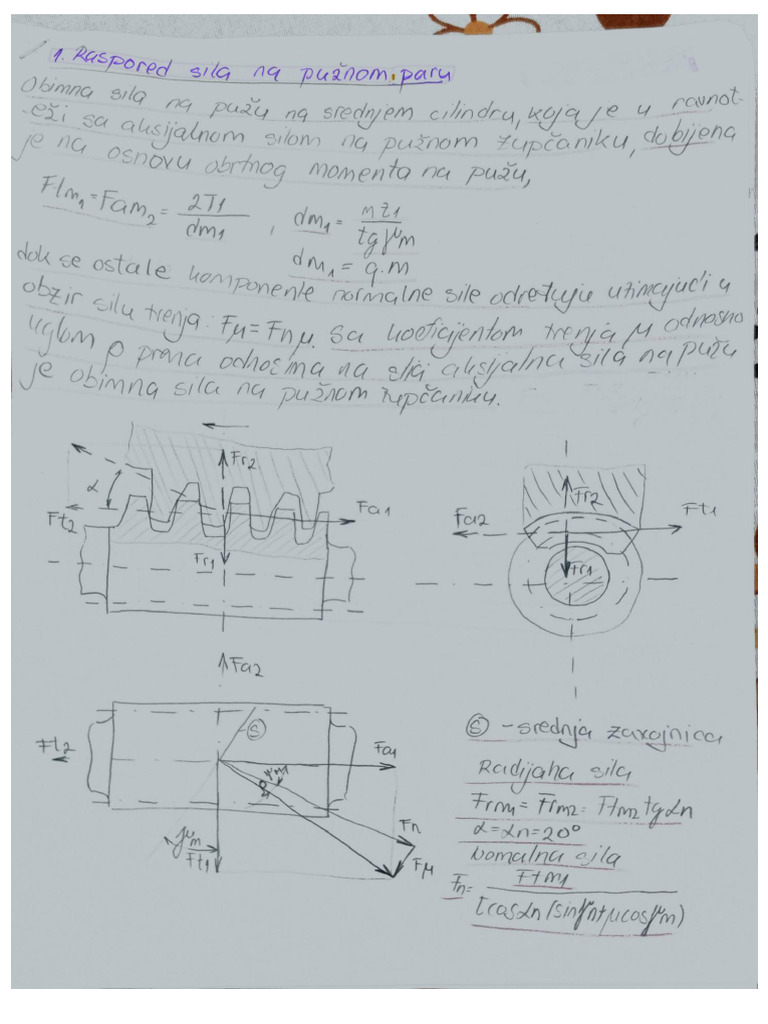 1. Raspored sila na pužnom paru
Obimna sila na pužu na srednjem cilindru, koja je u ravnot-
-eži sa aksijalnom silom na pužnom zupčaniku, dobijena
je na osnovu obrtnog momenta na pužu,
Ftm1 = Fam2 = 2T1/dm1 , dm1 = mz1/tgγm
dm1 = q.m
dok se ostale komponente normalne sile određuju uzimajući u
obzir silu trenja: Fμ = Fnμ. sa koeficijentom trenja μ odnosno
uglom ρ prema
je obimna sila na pužnom zupčaniku.
Fr2
α
Ft2
Fa1
Fr1
Fr2
Fa2
Ft1
Fr1
Fa2
S
Ft2
Fa1
γm
Ft1
Fn
Fμ
S - srednja zavojnica
Radijalna sila
Frm1 = Frm2 = Ftm2 tgαn
α = αn = 20°
Nomalna sila
Fn = Ftm1/[cosαn(sinγm+μcosγm)